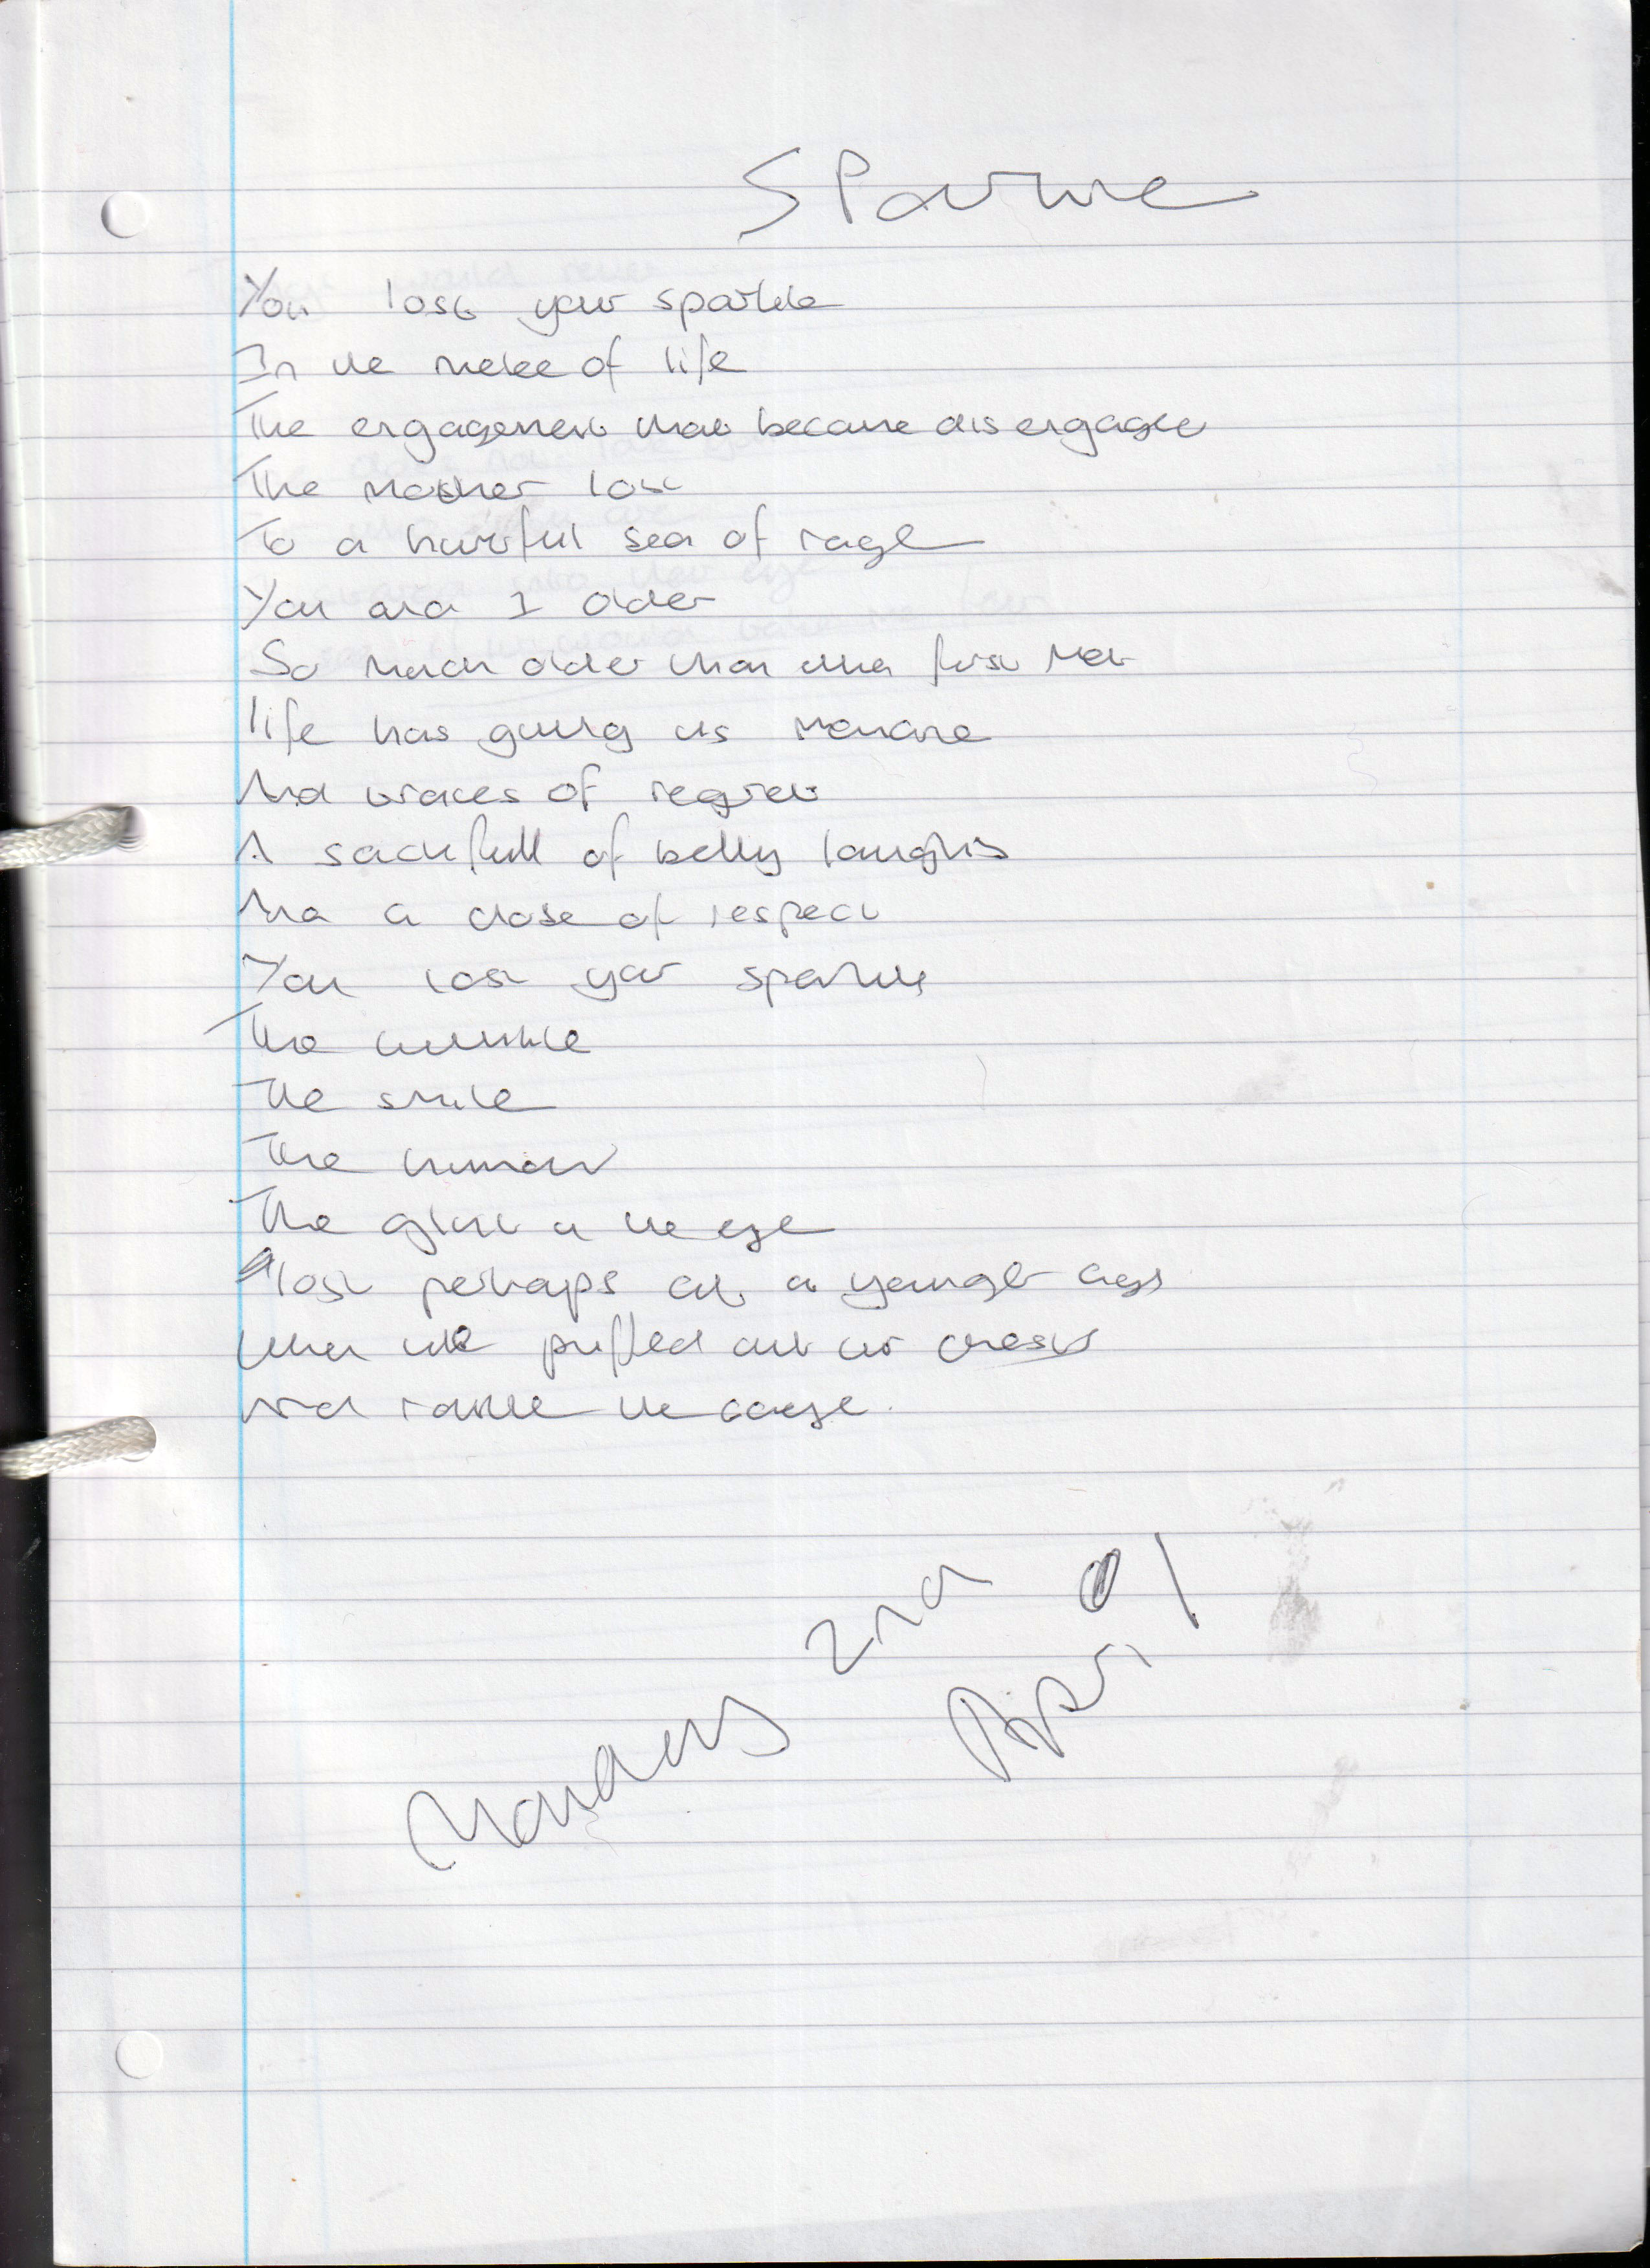 Sparkle
You lost your sparkle
In the melee of life
The engagement that became disengaged
The mother lost
To a hurtful sea of rage
You and I older
So much older than when first met
life has given us
And traces of regret
A sackfull of belly laughs
And a dose of respect
You lost your sparkle
The twinkle
The smile
The humour
The glint in the eye
lost perhaps at a younger age
When we puffed out our chests
And the
Monday 2nd
April 01